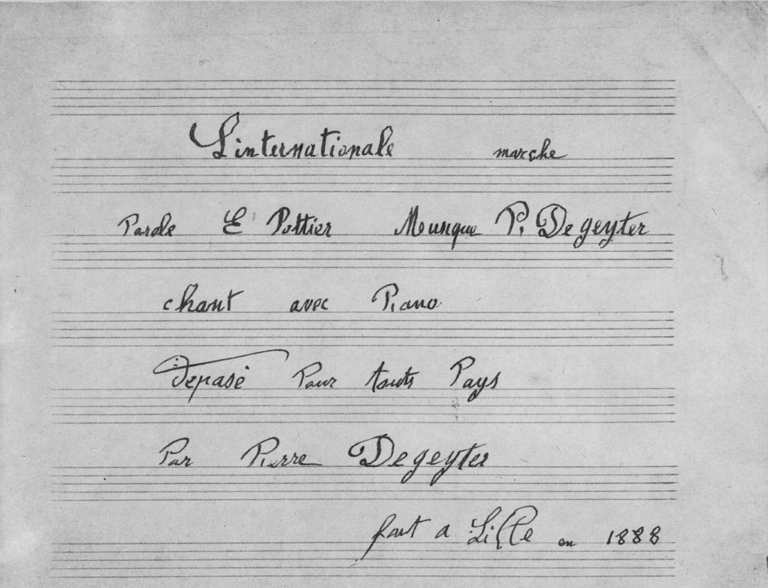 L'internationale marche
Parole E Pottier Musique P. Degeyter
chant avec Piano
Déposé Pour touts Pays
Par Pierre Degeyter
fait a Lille en 1888